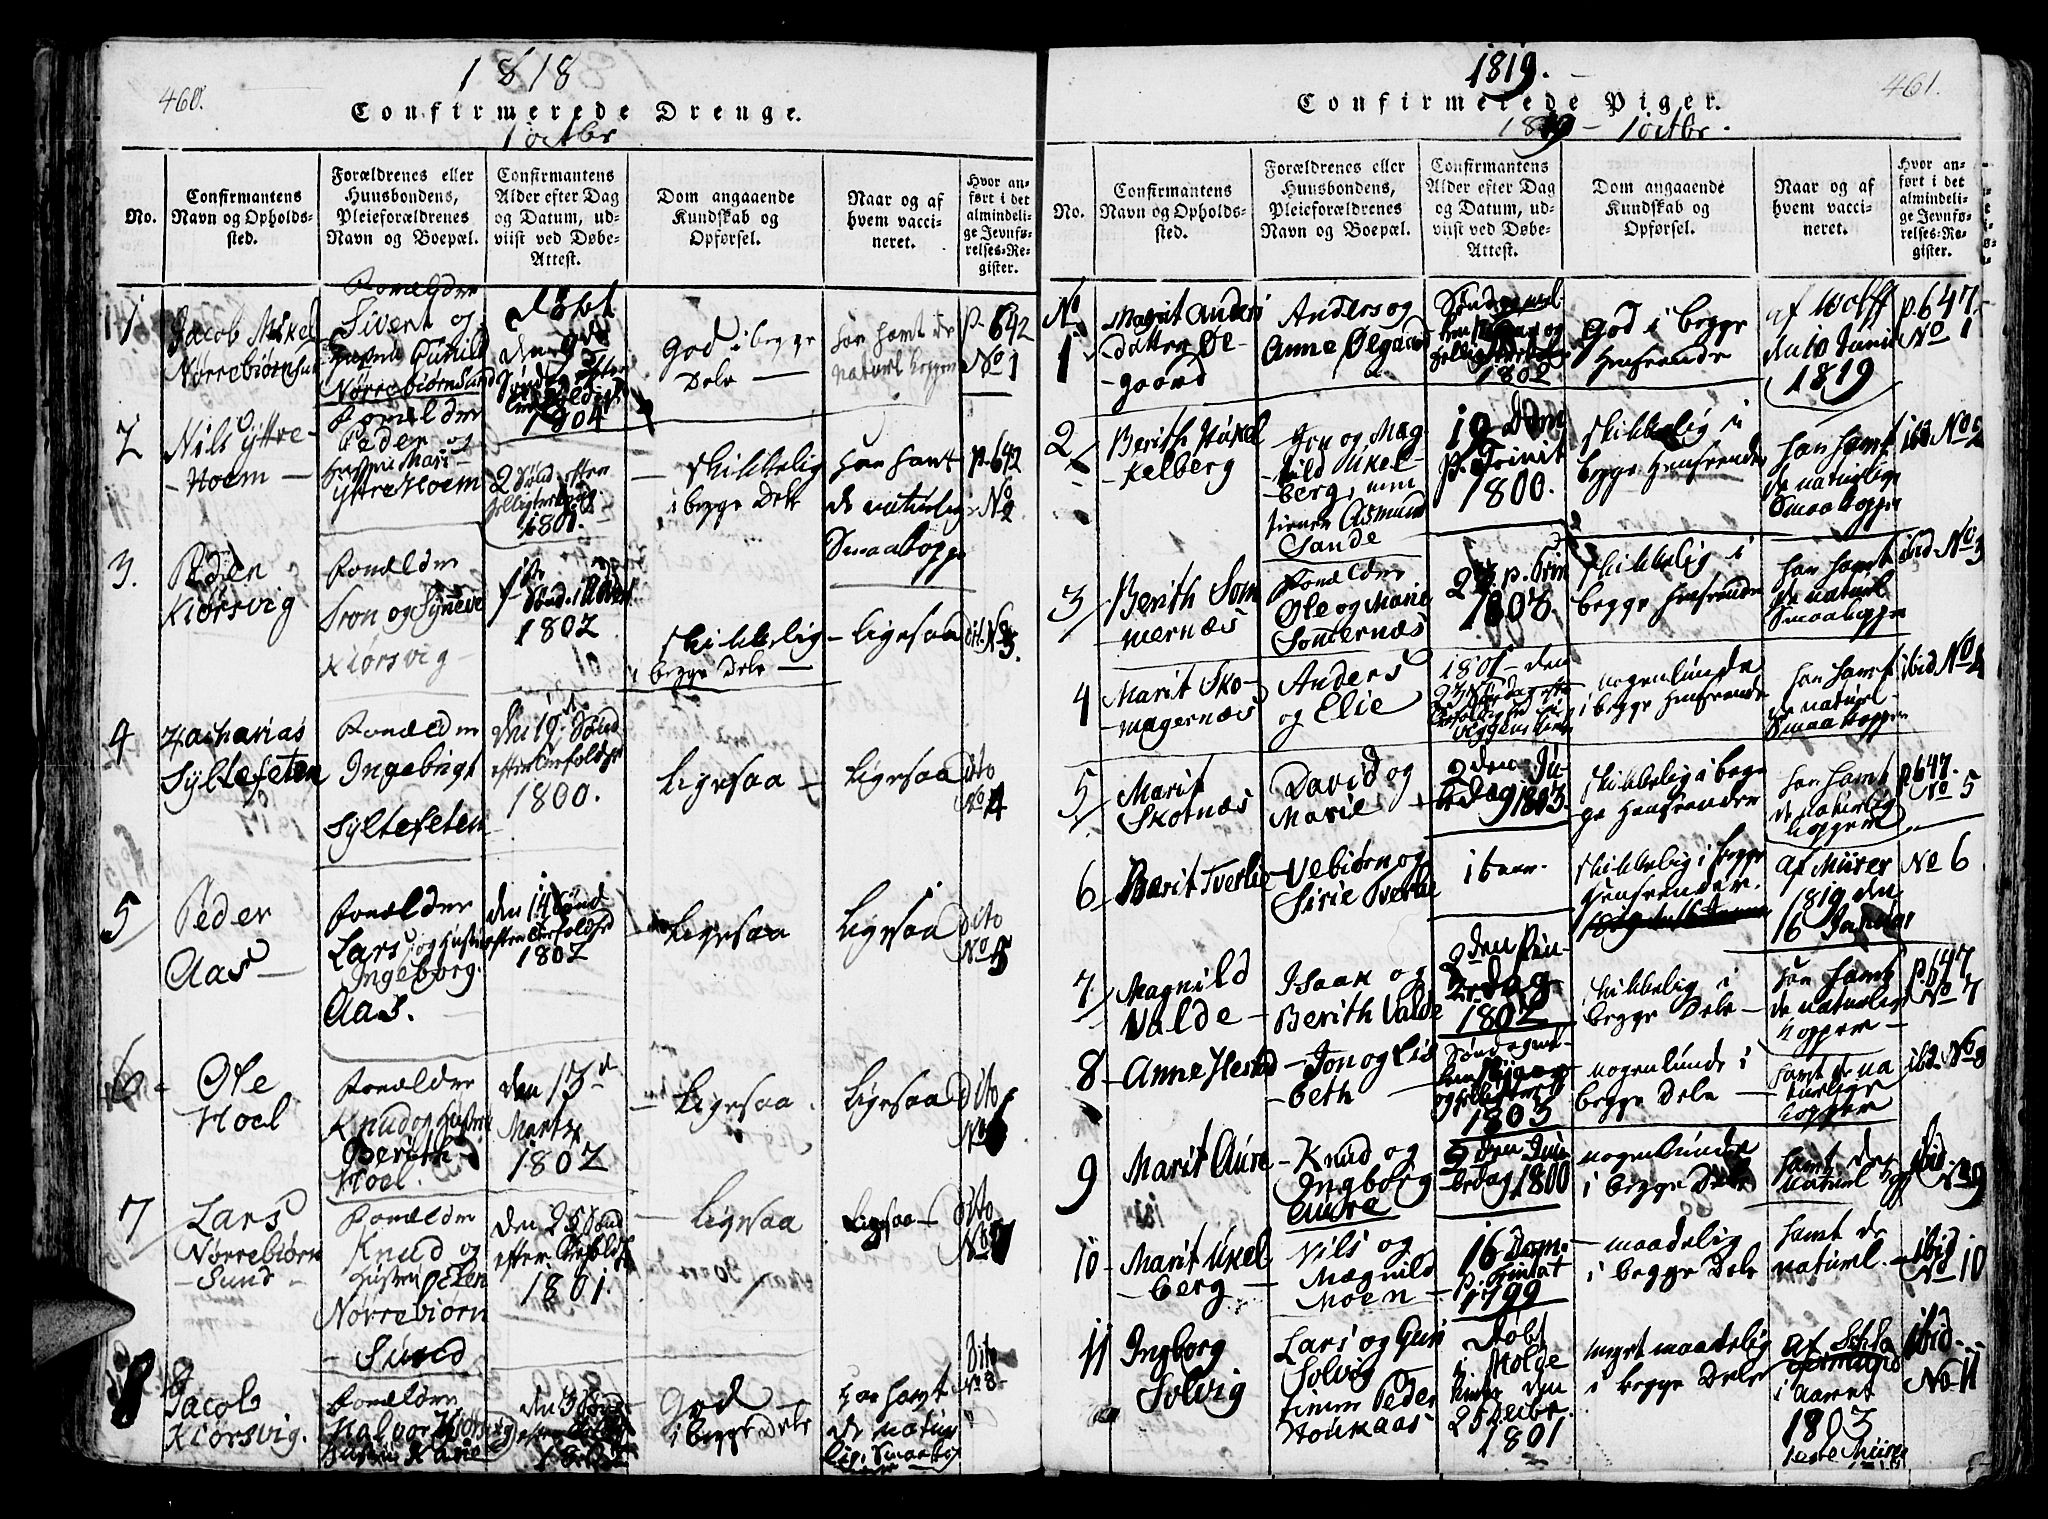 460.
1818
Confirmerede Drenge.
1 octbr
No.
Confirmantens
Navn og Opholds-
sted.
Forældrenes eller
Huusbondens,
Pleieforældrenes
Navn og Boepæl.
Confirmantens
Alder efter Dag
og Datum, ud-
viist ved Døbe-
Attest.
Dom angaaende
Kundskab og
Opførsel.
Naar og af
hvem vacci-
neret.
Hvor an-
ført i det
almindeli-
ge Jevnfø-
relses-Re-
gister.
1
Jacob Mikel
Nørrebiørnsund
Forældre
Sivert og
Gunild
Nørrebiørnsund
Døbt
1804
God i begge
Dele
har havt de
naturl kopper
p. 642
No 1
2
Nils Yttre-
Hoem
Forældre
Peder og
Hustru Mari
Yttre Hoem
2 Sønd. efter
1801.
skikkelig
i begge Dele
har havt
de naturlig
Smaakopper
p. 642
No 2
3.
Peder
Kiørsvig
Forældre
Iron og Synneve
Kiørsvig
1ste
Sønd. i Advent
1802
skikkelig
i begge Dele
ligesaa
dito No 3.
4
Zacharias
Syltefeten
Forældre
Ingebrigt
Syltefeten
den 19de Sønd
efter Trefoldighed
1800.
Ligesaa
Ligesaa
dito
No 4
5
Peder
Aas
Forældre
Lars og Hustru
Ingeborg
Aas.
den 14 Sønd
efter Trefoldighed
1802
Ligesaa
Ligesaa
Dito
No 5
6
Ole
Hoel
Forældre
Knud og Hustru
Berith
Hoel.
den 13de
Martz
1802
Ligesaa
Ligesaa
Dito
No 6
7
Lars
Nørrebiørn
Sund
Forældre
Knud og
Hustru
Nørrebiørn
Sund
den 25 Sønd
efter Trefoldigh
1801.
Ligesaa
Ligesaa
dito
No 7
8
Jacob
Kiørsvig.
Forældre
Halvor Kiørsvig
Hustru Karie
den 3 Sønd
God
i begge Dele
har havt
de natur
lig. Smaakop
Dito
No 8
461.
1819.
Confirmerede Piger.
1819 - 1 octbr.
No.
Confirmantens
Navn og Opholds-
sted.
Forældrenes eller
Huusbondens,
Pleieforældrenes
Navn og Boepæl.
Confirmantens
Alder efter Dag
og Datum, ud-
viist ved Døbe-
Attest.
Dom angaaende
Kundskab og
Opførsel.
Naar og af
hvem vacci-
neret.
Hvor an-
ført i det
almindeli-
ge Jevnfø-
relses-Re-
gister.
No
1
Marit Anders
datter Øe-
gaard
Anders og
Anne Øegaard
Søndag mel-
lem Nytaar og
Hellig 3 Konger
1802
God i begge
Henseende
af Wolff
den 10 Junii
1819
p. 647
No 1
2
Berith Uxel
kelberg
Jon og Mag-
nild Uxel-
berg, nu
tiener Asmund
Sande
19 Dom
p. Trinit
1800.
skikkelig i
begge Henseender
har havt
de naturlige
Smaakopper
ibd No 2
3
Berith Som
mernæs
Forældre
Ole og Marie
Somernæs
1803
skikkelig i
begge Henseende
har havt
de naturl
Smaakopper
ibid. No 3
4
Marit Sko-
magernæs
Anders
og Elie
1801 - den
23 Søndag efter
nogenlunde
i begge Henseende
har havt
de naturl
Smaa kopper
ibid No 4
5
Marit
Skotnæs
David og
Marie
2den Ju-
ledag 1803
skikkelig i beg-
ge Henseender
har havt
de naturlig
kopper
p 647.
No 5
6
Berit Tverlie
Vebiørn og
Sirie Tverlie
16 aar.
skikkelig i begge
Henseender.
af Müser
1819 den
16
No 6
7
Magnild
Valde
Isaak og
Berith Valde
2den Pin-
tsedag
1802
skikkelig i
begge Dele
har havt
de naturlig
kopper
p. 647
No 7
8
Anne Hestad
Jon og Lis
beth
Søndag mel-
lem Nytaar
og Hellig 3
1803
nogenlunde i
begge Dele
havt de na
turlige
kopper
ibd. No 8
9
Marit Aure
Knud og
Ingborg
Aure
2den Jule
dag 1800
nogenlunde
i begge Dele
havt de
naturl kop
ibid.
No 9
10
Marit Uxel
berg
Nils og
Magnild
Moen
16 Dom.
p. Trinitat
1799
maadelig
i begge Dele
havt de
naturl.
ibid
No 10
11
Ingborg
Solvig
Lars og Guri
Solvig
tiener Peder
Houkaas
Døbt
i Molde
Kirke den
25 Decbr.
1801
meget maadelig
i begge Dele
af
i aaret
1803
ibid
No 11